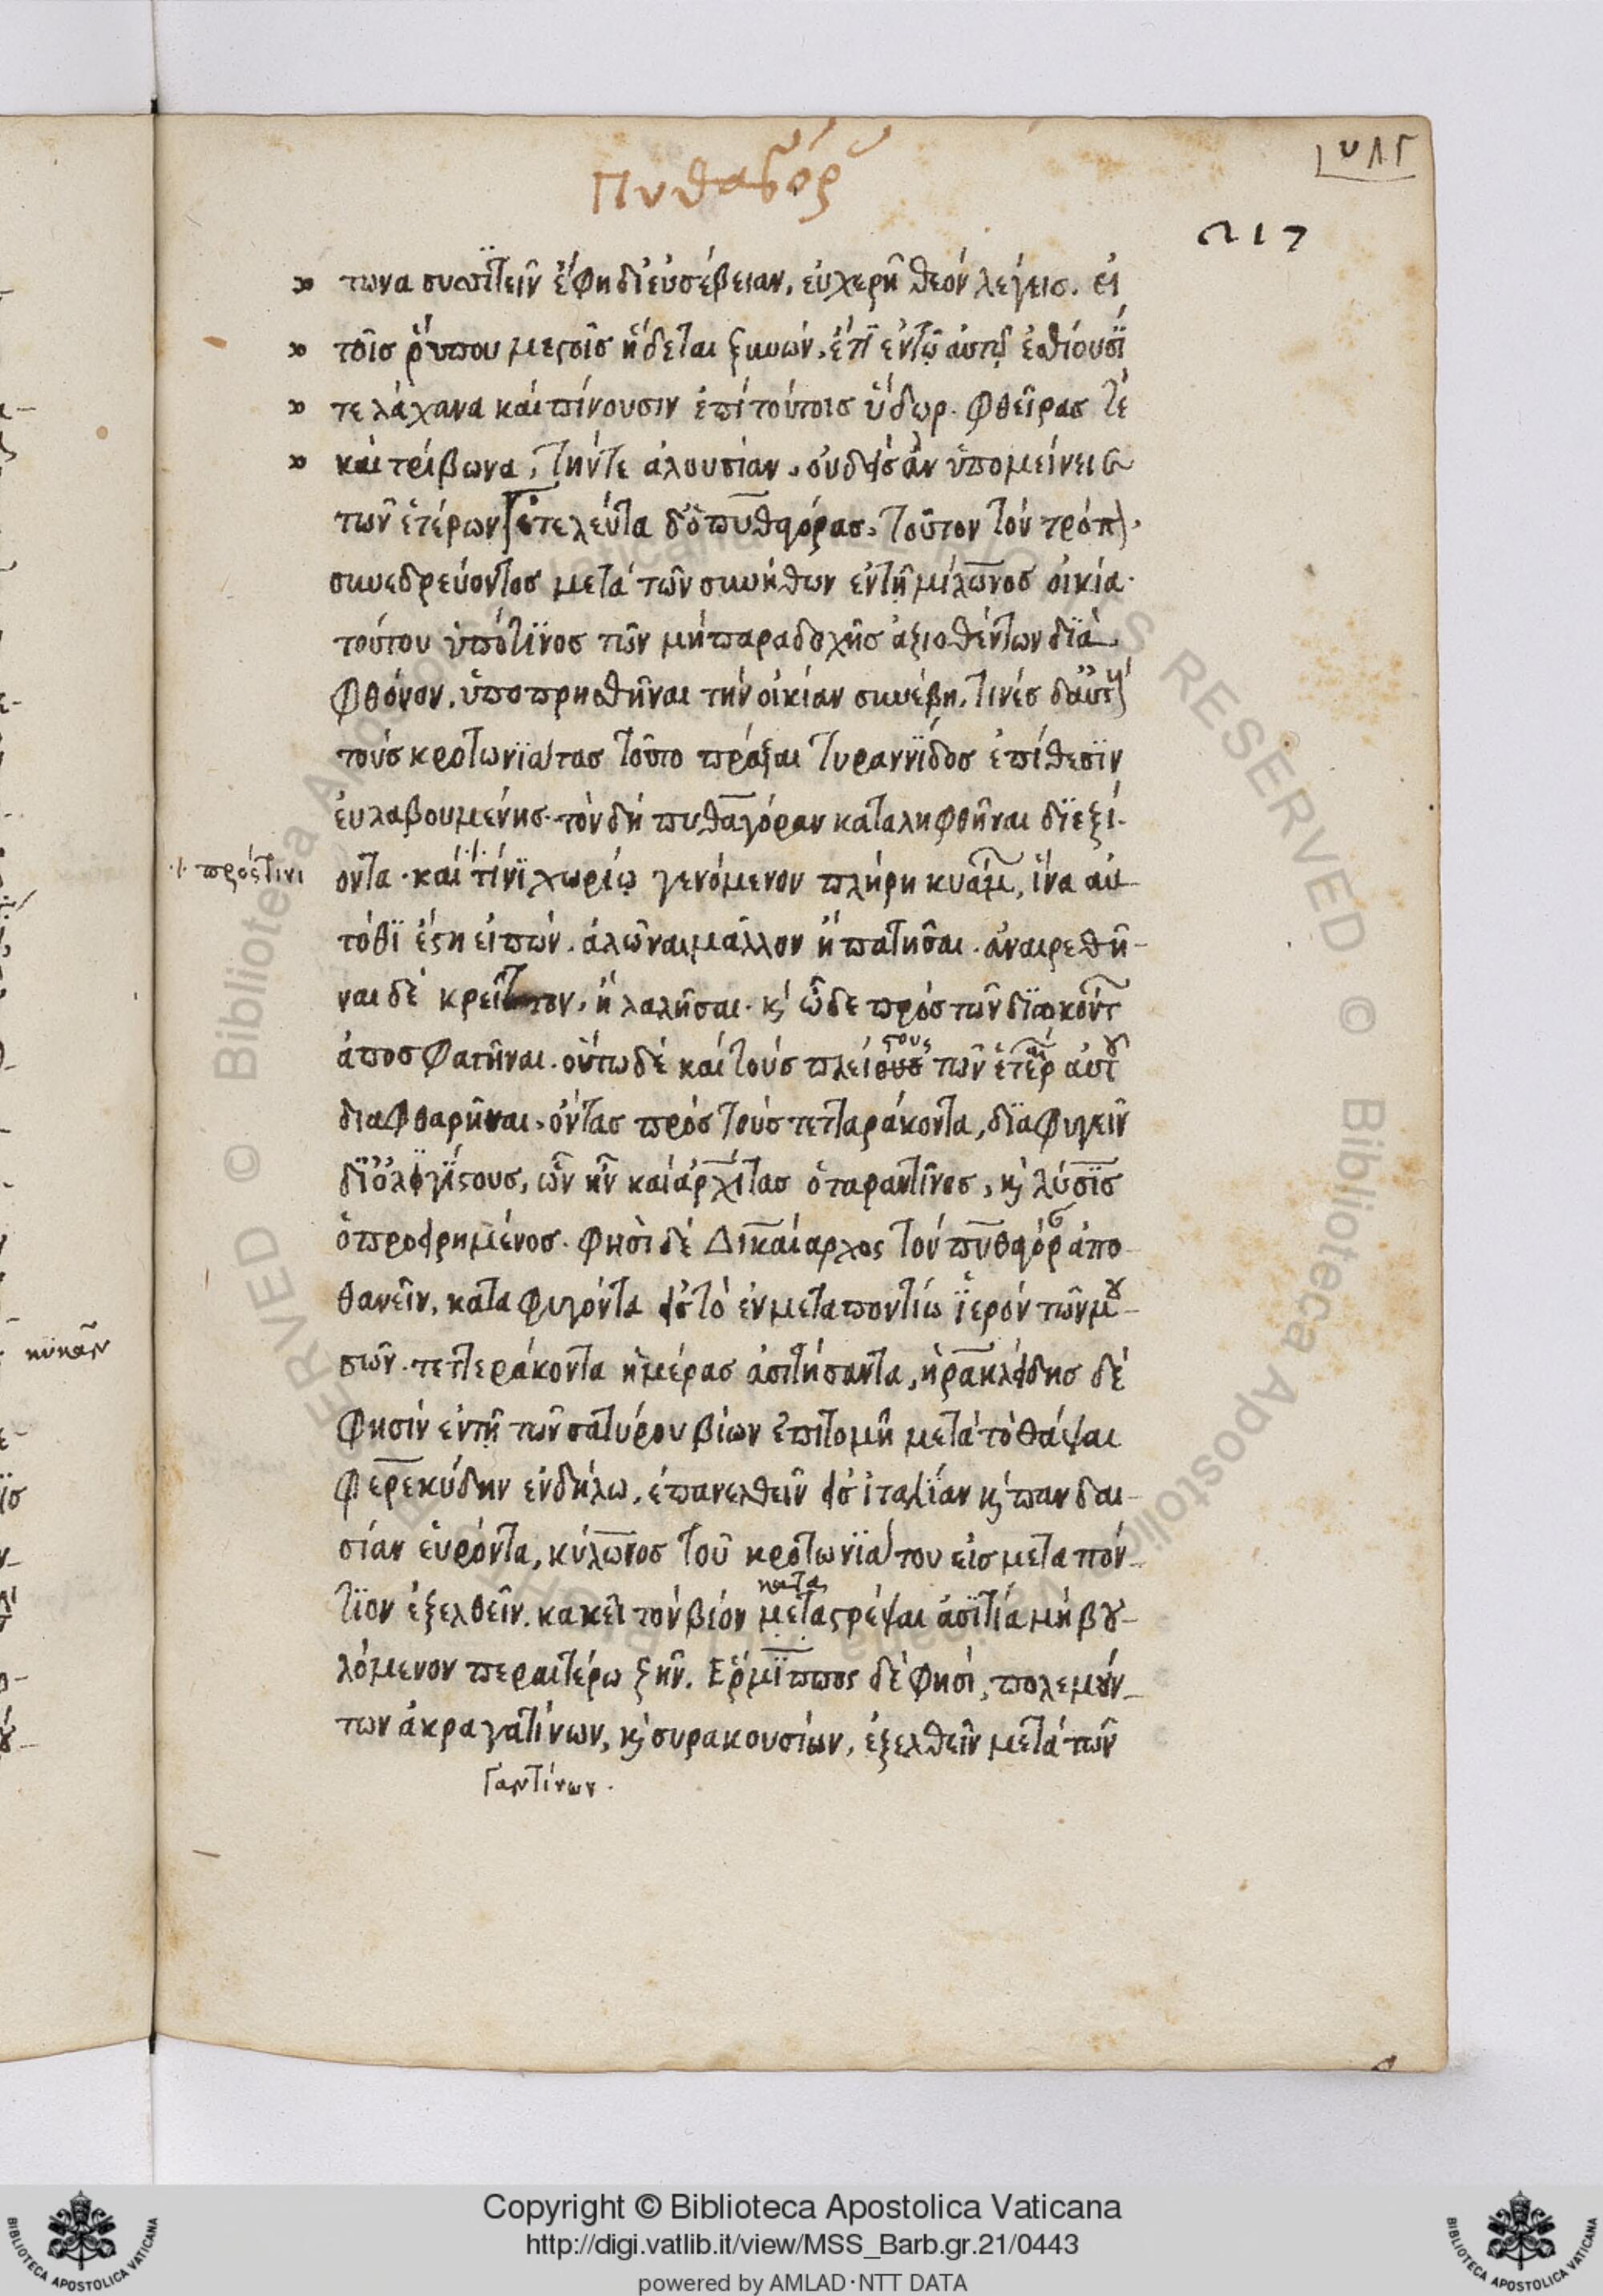 Πυθαγόρ
217
τωνα συσιτεῖν ἔφη δι' εὐσέβειαν, εὐχερῆ θεὸν λέγεις. εἰ
τοῖσ ῥύπου μεστοῖσ ἥδεται ξυνών. ἔτι ἐν τῷ αὐτῷ ἐσθίουσί
τε λάχανα καὶ πίνουσιν ἐπὶ τούτοισ ὕδωρ. φθεῖρας τὲ
καὶ τρίβωνα, τήν τε ἀλουσίαν, οὐδεὶσ ἂν ὑπομείνειε
τῶν ἑτέρων ἐτελεύτα δ' ὁ πυθαγόρας, τοῦτον τὸν τρόπ
συνεδρεύοντοσ μετὰ τῶν συνήθων ἐν τῇ μίλωνοσ οἰκία.
τούτου ὑπό τινοσ τῶν μὴ παραδοχῆσ ἀξιοθέντων διὰ
φθόνον, ὑποπρησθῆναι τὴν οἰκίαν συνέβη. τινέσ δ' αὐτ
τοὺσ κροτωνιάτασ τοῦτο πράξαι τυραννίδοσ ἐπίθεσιν
εὐλαβουμένησ. τὸν δὴ πυθαγόραν καταληφθῆναι διεξί-
πρός τινι
όντα. καί τινι χωρίῳ γενόμενον πλήρη κυάμ, ἵνα αὐ-
τόθι ἔστη εἰπών. ἁλῶναι μᾶλλον ἢ πατῆσαι. ἀναιρεθῆ-
ναι δὲ κρεῖττον, ἢ λαλῆσαι. κ ὧδε πρὸσ τῶν διωκόντ
ἀποσφαγῆναι. οὕτω δὲ καὶ τοὺσ πλείους τῶν ἑτέρ αὐτ
στους
αι
διαφθαρῆναι, ὄντασ πρὸσ τοὺσ τετταράκοντα, διαφυγεῖν
δ' ὀλιγίστουσ, ὧν ἦν καὶ ἀρχίτασ ὁ ταραντῖνοσ, κ λύσισ
ὁ προειρημένοσ. φησὶ δὲ Δικαίαρχος τὸν πυθαγόρ ἀπο
θανεῖν, καταφυγόντα εἰσ τὸ ἐν μεταποντίω ἱερὸν τῶν μου-
σῶν. τετταράκοντα ἡμέρασ ἀσιτήσαντα, ἡρακλείδησ δέ
φησὶν ἐν τῇ τῶν σατύρου βίων ἐπιτομῇ μετὰ τὸ θάψαι
φερεκύδην ἐν δήλω, ἐπανελθεῖν εἰσ ἰταλίαν κ πανδαι-
σίαν εὑρόντα, κύλωνοσ τοῦ κροτωνιάτου εἰσ μεταπόν-
κατα
τιον ἐξελθεῖν. κἀκεῖ τὸν βίον μεταστρέψαι ἀσιτία μὴ βου-
λόμενον περαιτέρω ζῆν. Ἕρμιππος δέ φησι, πολεμούν-
των ἀκραγατίνων, κ συρακουσίων, ἐξελθεῖν μετὰ τῶν
γαντίνων.
κύκων
Copyright © Biblioteca Apostolica Vaticana
http://digi.vatlib.it/view/MSS_Barb.gr.21/0443
powered by AMLAD·NTT DATA